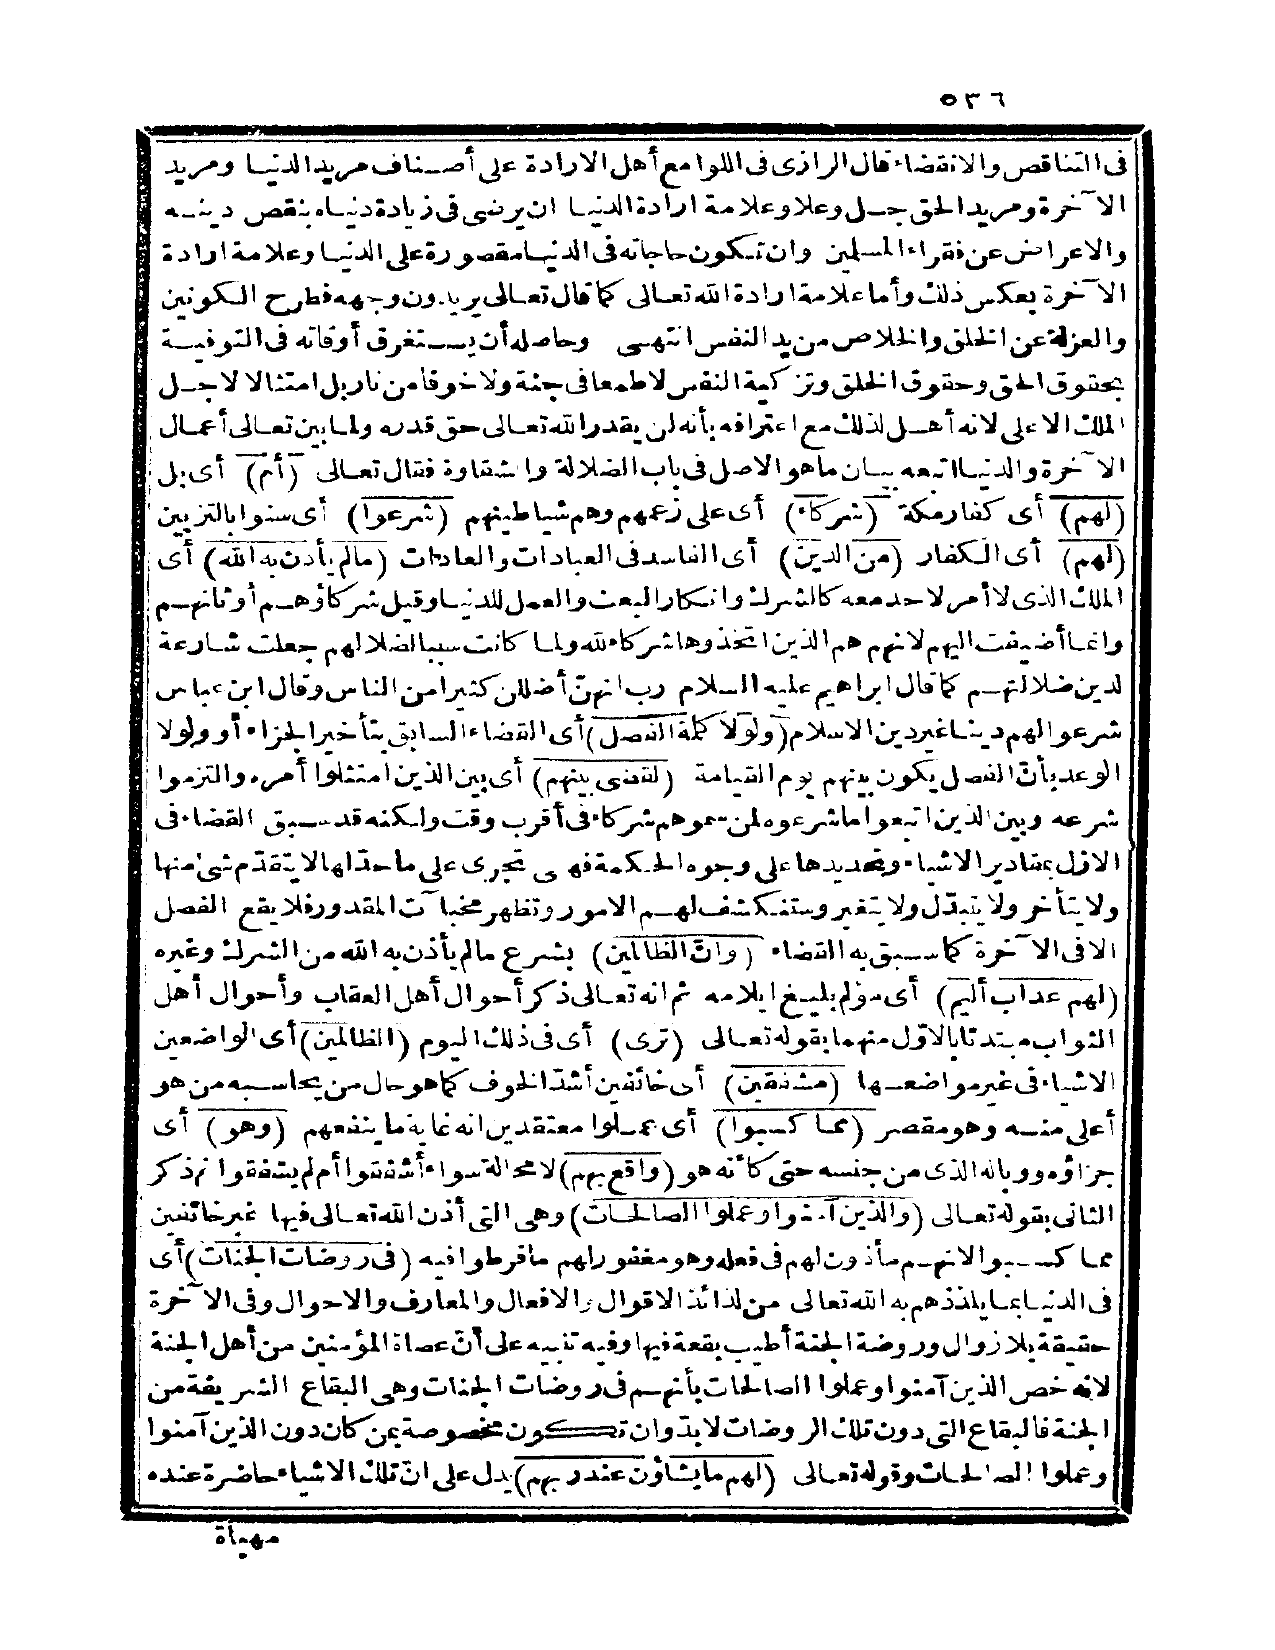 ٥٣٦
فى التناقص والانقضاء قال الرازى فى اللوامع أهل الارادة على أصناف مريد الدنيا ومريد
الآخرة ومريد الحق جل وعلا وعلامة ارادة الدنيا ان يرضى فى زيادة دنياه بنقص دينه
والاعراض عن فقراء المسلمين وان تكون حاجاته فى الدنيا مقصورة على الدنيا وعلامة ارادة
الآخرة بعكس ذلك وأما علامة ارادة الله تعالى كما قال تعالى يريدون وجهه فطرح الكونين
والعزلة عن الخلق والخلاص من يد النفس انتهى وحاصله أن يستغرق أوقاته فى التوفية
بحقوق الحق وحقوق الخلق وتزكية النفس لا طمعا فى جنة ولا خوفا من نار بل امتثالا لاجل
الملك الاعلى لانه أهل لذلك مع اعترافه بأنه لن يقدر الله تعالى حق قدره ولما بين تعالى أعمال
الآخرة والدنيا اتبعه بيان ما هو الاصل فى باب الضلالة والشقاوة فقال تعالى (أم) أى بل
(لهم) أى كفار مكة (شركاء) أى على زعمهم وهم شياطينهم (شرعوا) أى سنوا بالتزيين
(لهم) أى الكفار (من الدين) أى الفاسد فى العبادات والعادات (ما لم يأذن به الله) أى
الملك الذى لا أمر لاحد معه كالشرك وانكار البعث والعمل للدنيا وقيل شركاؤهم أوثانهم
وانما أضيفت اليهم لانهم هم الذين اتخذوها شركاء لله ولما كانت سببا لضلالهم جعلت شارعة
لدين ضلالتهم كما قال ابراهيم عليه السلام رب انهنّ أضللن كثيرا من الناس وقال ابن عباس
شرعوا لهم دينا غير دين الاسلام (ولولا كلمة الفصل) أى القضاء السابق بتأخير الجزاء أو ولولا
الوعد بأنّ الفصل يكون بينهم يوم القيامة (لقضى بينهم) أى بين الذين امتثلوا أمره والتزموا
شرعه وبين الذين اتبعوا ما شرعوه لمن سموهم شركاء فى أقرب وقت ولكنه قد سبق القضاء فى
الازل بمقادير الاشياء وتحديدها على وجوه الحكمة فهى تجرى على ما حدّ لها لا يتقدم شئ منها
ولا يتأخر ولا يتبدّل ولا يتغير وستنكشف لهم الامور وتظهر مخبآت المقدور فلا يقع الفصل
الا فى الآخرة كما سبق به القضاء (وانّ الظالمين) بشرع ما لم يأذن به الله من الشرك وغيره
(لهم عذاب أليم) أى مؤلم بليغ ايلامه ثم انه تعالى ذكر أحوال أهل العقاب وأحوال أهل
الثواب مبتدئا بالاوّل منهما بقوله تعالى (ترى) أى فى ذلك اليوم (الظالمين) أى الواضعين
الاشياء فى غير مواضعها (مشفقين) أى خائفين أشدّ الخوف كما هو حال من يحاسبه من هو
أعلى منه وهو مقصر (مما كسبوا) أى عملوا معتقدين انه غاية ما ينفعهم (وهو) أى
جزاؤه ووباله الذى من جنسه حتى كأنه هو (واقع بهم) لا محالة سواء أشفقوا أم لم يشفقوا ثم ذكر
الثانى بقوله تعالى (والذين آمنوا وعملوا الصالحات) وهى التى أذن الله تعالى فيها غير خائفين
مما كسبوا لانهم مأذون لهم فى فعله وهو مغفور لهم ما فرطوا فيه (فى روضات الجنات) أى
فى الدنيا بما يلذذهم به الله تعالى من لذائذ الاقوال والافعال والمعارف والاحوال وفى الآخرة
حقيقة بلا زوال وروضة الجنة أطيب بقعة فيها وفيه تنبيه على أنّ عصاة المؤمنين من أهل الجنة
لانه خص الذين آمنوا وعملوا الصالحات بأنهم فى روضات الجنات وهى البقاع الشريفة من
الجنة فالبقاع التى دون تلك الروضات لا بدّ وان تكون مخصوصة بمن كان دون الذين آمنوا
وعملوا الصالحات وقوله تعالى (لهم ما يشاؤن عند ربهم) يدل على انّ تلك الاشياء حاضرة عنده
مهيأة